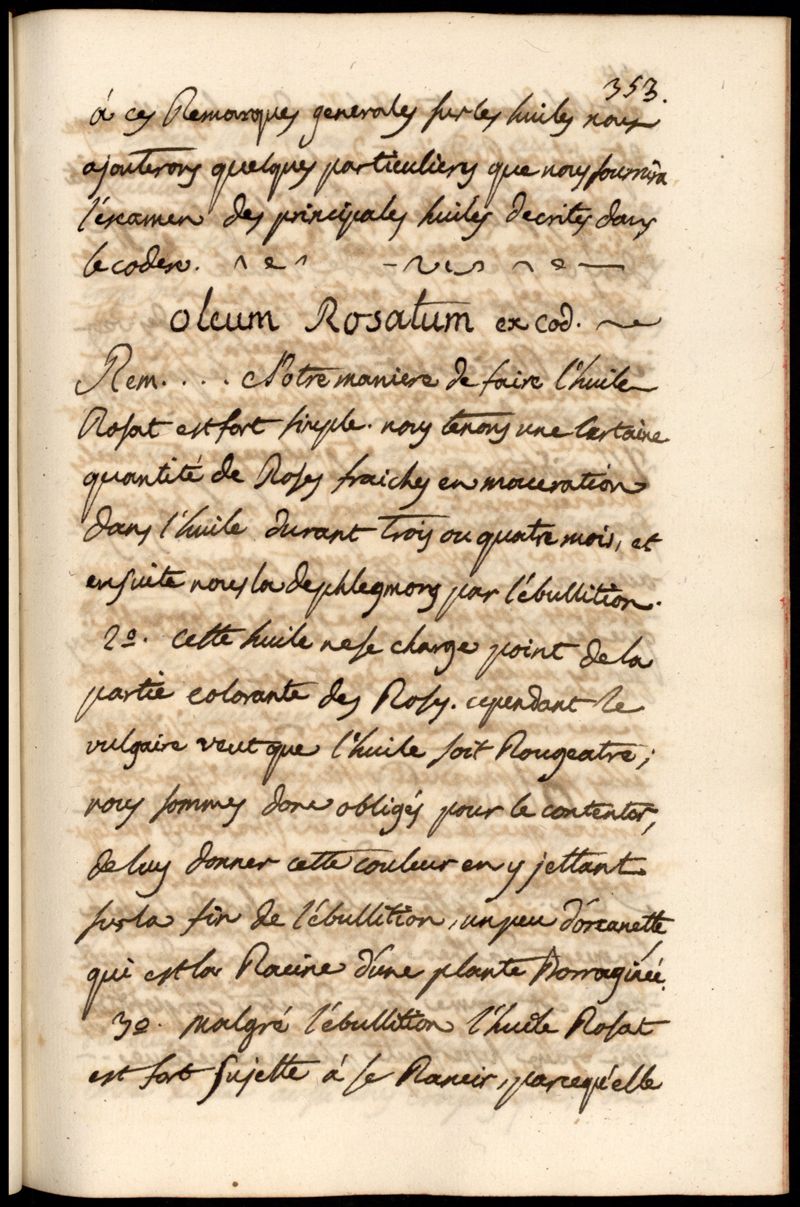 353.
á ces Remarques generales sur les huiles nous
ajouterons quelques particuliers que nous fournira
l'éxamen des principales huiles decrites dans
le codex.
oleum Rosatum ex cod.
Rem. . . . Notre maniere de faire l'huile
Rosat est fort simple. nous tenons une certaine
quantité de Roses fraiches en maceration
dans l'huile durant trois ou quatre mois, et
ensuite nous la dephlegmons par l'ébullition.
2º. cette huile ne se charge point de la
partie colorante des Roses. cependant le
vulgaire veut que l'huile soit Rougeatre;
nous sommes donc obligés pour le contenter,
de luy donner cette couleur en y jettant
sur la fin de l'ébullition, un peu d'orcanette
qui est la Racine d'une plante Borraginéé.
3º. malgré l'ébullition l'huile Rosat
est fort Sujette á se Rancir, parcequ'elle